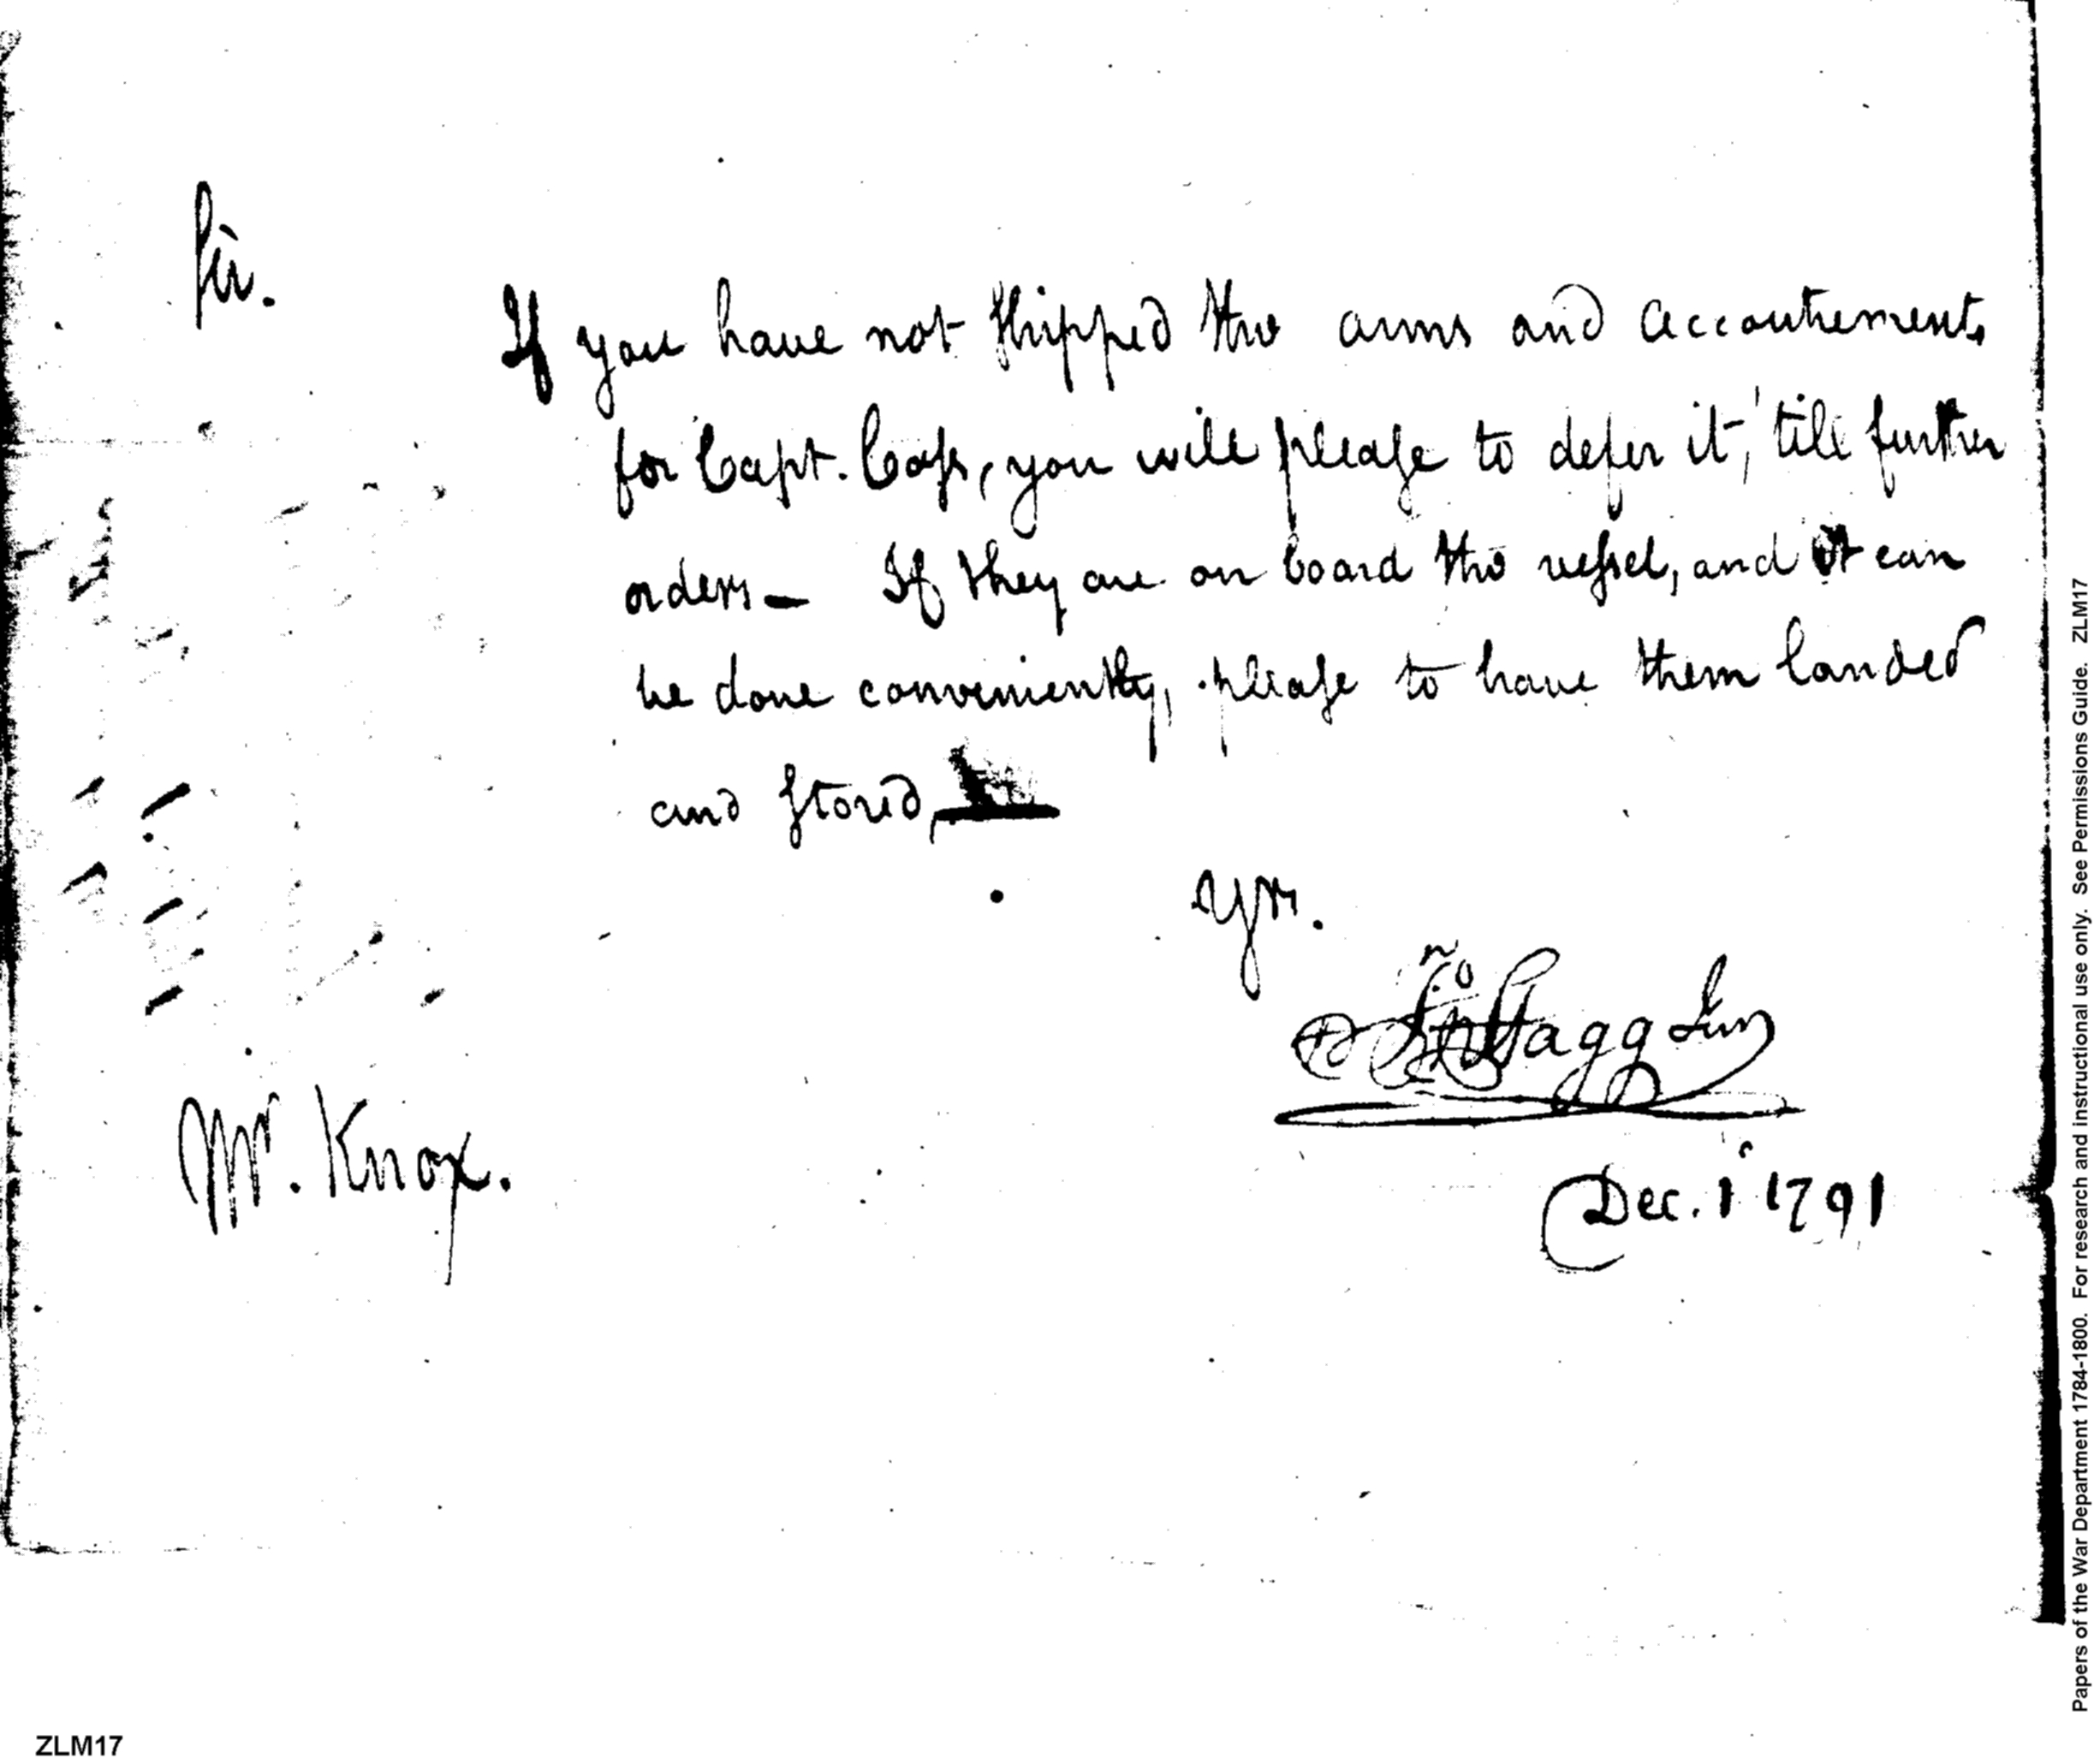 Sir.
If you have not shipped the arms and accoutrements
for Capt. Cass, you will please to defer it, 'till further
orders — If they are on board the vessel, and it can
be done conveniently, please to have them landed
and stored,
Yrs.
Jno Stagg Jun
Dec. 1 1791
Mr. Knox.
Papers of the War Department 1784-1800. For research and instructional use only. See Permissions Guide. ZLM17
ZLM17